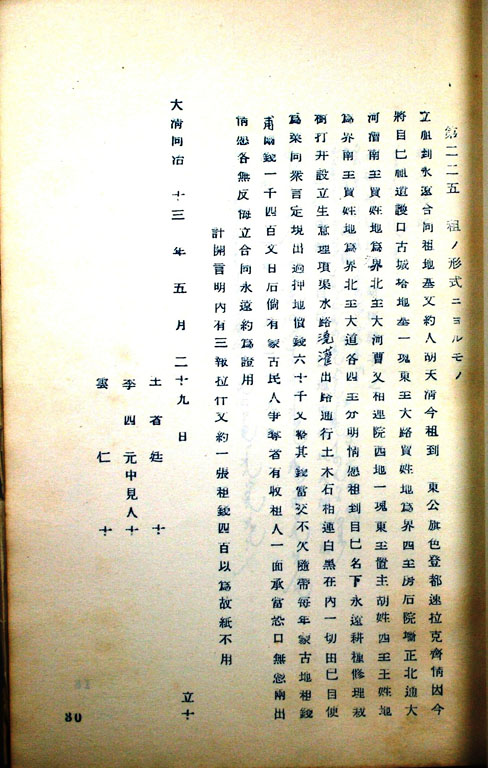 第二二五　租ノ形式ニヨルモノ
立租到永遠合同租地基文約人胡天清今租到　東公旗色登都速拉克齊情因今
將自己祖遺護口古城㙮地基一塊東至大路賈姓地為界四至房后院墻正北通大
河漕南至賈姓地為界北至大河曹又相連院西地一塊東至置主胡姓西至王姓地
為界南至賈姓地為界北至大道各四至分明情愿租到自己名下永遠耕種修理栽
樹打井設立生意理項渠水路澆灌出路通行土木石相連白黑在內一切由己自使
為業同衆言定現出過押地價錢六十千文畧其錢當交不欠隨帶每年蒙古地租錢
兩錢一千四百文日后倘有蒙古民人爭奪者有收租人一面承當恐口無憑兩出
情愿各無反悔立合同永遠約為證用
計開言明內有三報拉仃文約一張租錢四百以為故紙不用
大清同治　十三年五月二十九日　　立十
王省廷　十
李四元中見人十
雲仁　十
80